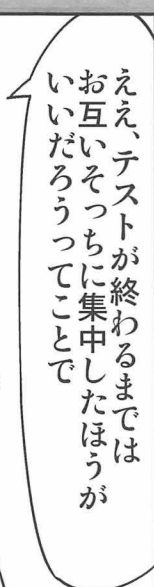 ええ、テストが終わるまでは
お互いそっちに集中したほうが
いいだろうってことで